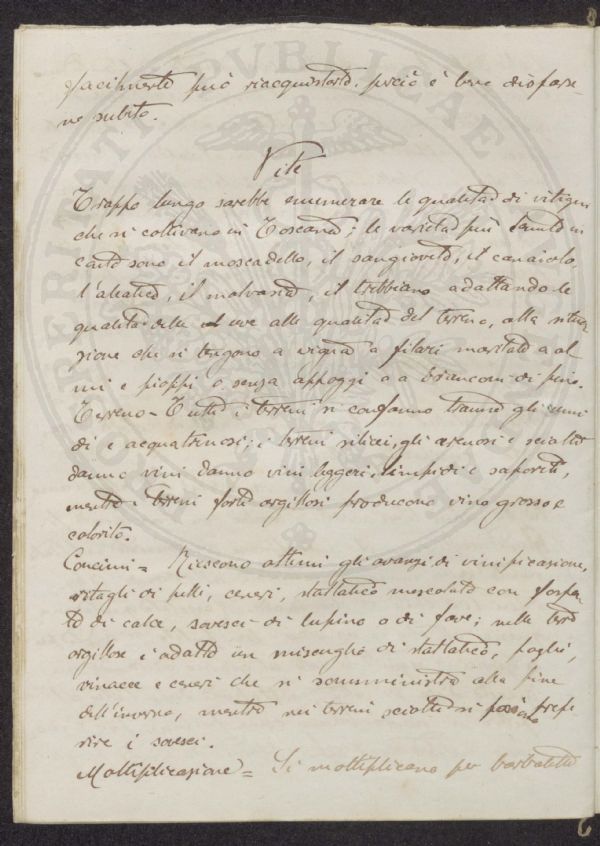 facilmente può riacquistarla. perciò è bene disfarse-
ne subito.
Vite
Troppo lungo sarebbe enumerare le qualità di vitigni
che si coltivano in Toscana; le varietà più
sono il moscadello, il sangioveto, il canaiolo,
l'aleatico, il malvasia, il trebbiano adattando le
qualità delle uve alle qualità del terreno, alla situa-
zione che si tengono a vigna a filari maritate a ol
mi e pioppi o senza appoggi o a branconi di pino.
Terreno = Tutti i terreni si confanno tranne gli umi
di e acquatrinosi; i terreni silicei, gli arenosi e sciolti
danno vini danno vini leggeri, limpidi e saporiti,
mentre i terreni forti argillosi producono vino grosso e
colorito.
Concimi = Riescono ottimi gli avanzi di vinificazione,
ritagli di pelli, ceneri, stallatico mescolato con fosfa-
to di calce, sovesci di lupino o di fave; nelle terre
argillose è adatto un miscuglio di stallatico, foglie,
vinacce e ceneri che si somministra alla fine
dell'inverno, mentre nei terreni sciolti si possono prefe-
rire i sovesci.
Moltiplicazione = Si moltiplicano per barbatelle
PVBLICAE